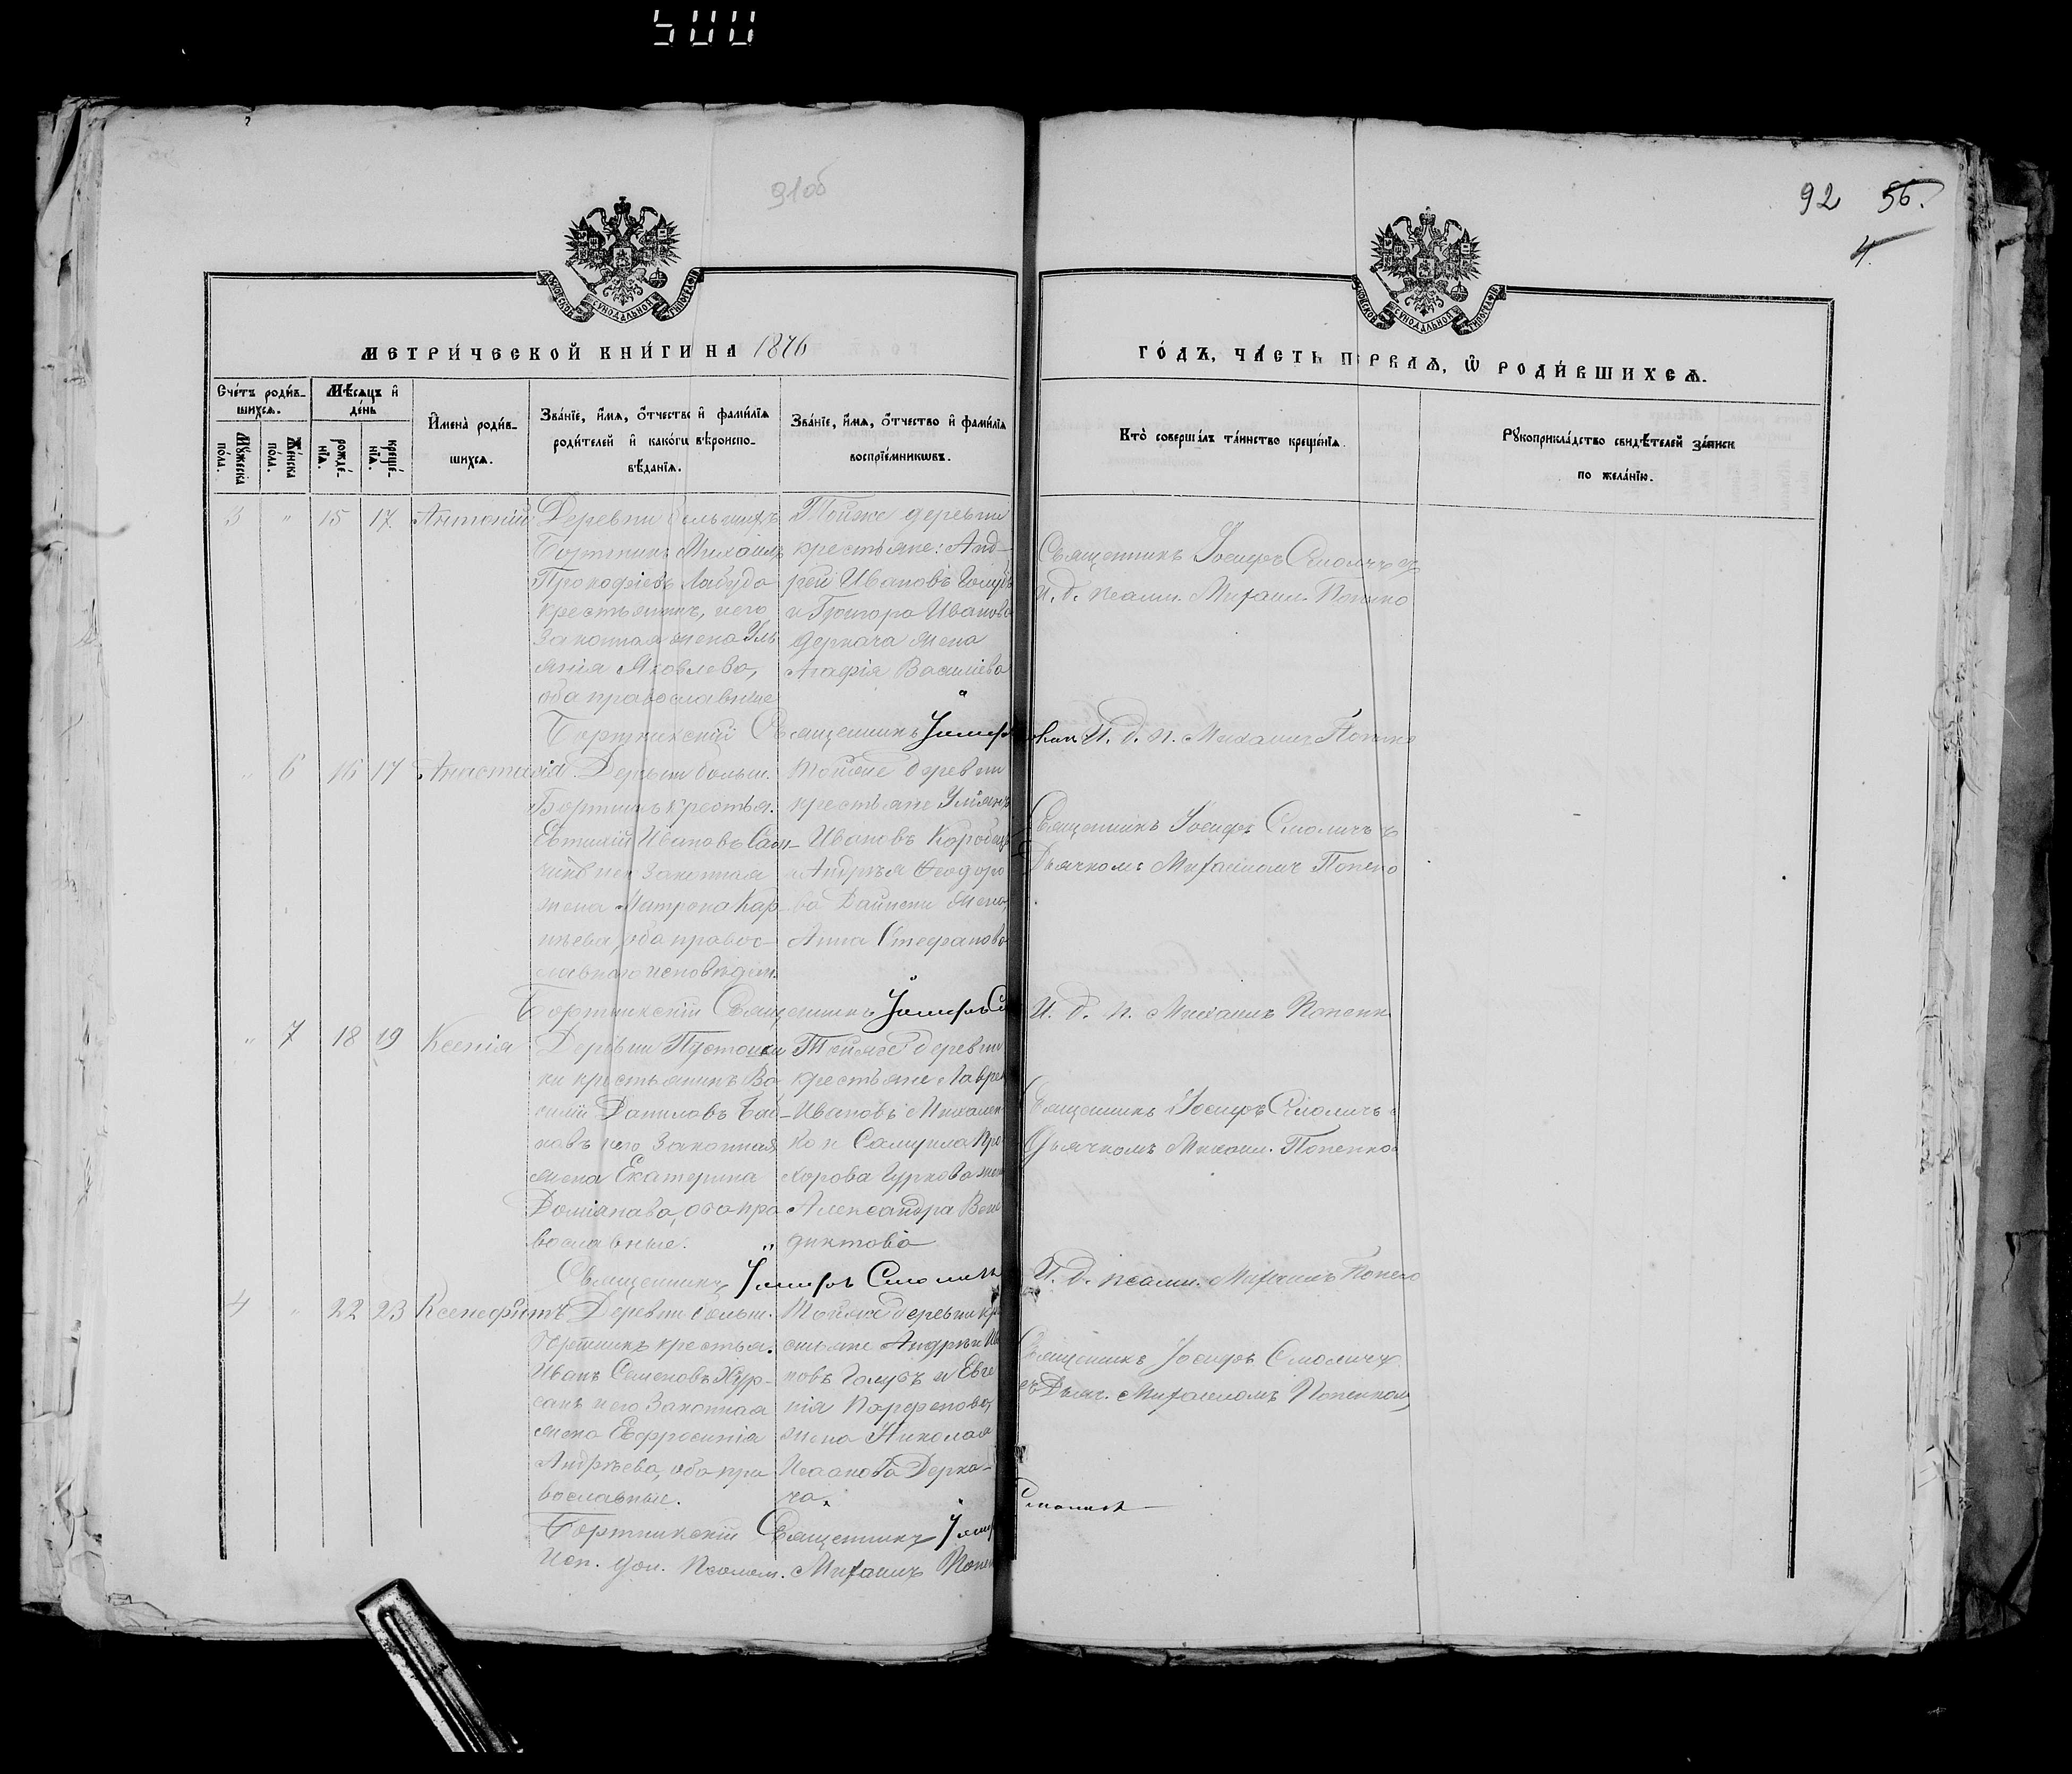 500
91об
92 56.
4
МОСКОВСКОЙ СѴНОДАЛЬНОЙ ТИПОГРАФІИ
МОСКОВСКОЙ СѴНОДАЛЬНОЙ ТИПОГРАФІИ
МЕТРИ́ЧЕСКОЙ КНИ́ГИ НА 1876
ГО́ДЪ, ЧА́СТЬ ПЕ́РВАѦ, Ѡ҆ РОДИ́ВШИХСѦ.
Сче́тъ роди́в-
шихсѧ.
Мꙋ́жеска по́ла.
Же́нска по́ла.
Мѣ́сѧцъ и҆
де́нь
рожде́-нїѧ.
креще́-нїѧ.
И҆мена̀ роди́в-
шихсѧ.
Зва́нїе, и҆́мѧ, ѻ҆́тчество и҆ фами́лїѧ
роди́телей и҆ како́гѡ вѣроиспо-
вѣ́данїѧ.
Зва́нїе, и҆́мѧ, ѻ҆́тчество и҆ фами́лїѧ
воспрїе́мникѡвъ.
Кто̀ соверша́лъ та́инство креще́нїѧ.
Рꙋкоприкла́дство свидѣ́телей за́писи
по жела́нїю.
3 " 15 17 Антоній
Деревни большихъ
Бортникъ Михаилъ
Прокофіевъ Лабуда
крестьянинъ, и его
законная жена Уль
янія Яковлева,
оба православные
Тойже деревни
крестьяне: Анд-
рей Ивановъ Голубъ
и Григора Иванова
Деркача жена
Агафія Василіева
Священникъ Іосифъ Смоличъ съ
и. д. псалм. Михаил. Попенко
Бортникскій Священникъ Іосифъ
И. д. п. Михаилъ Попенко
" 6 16 17 Анастасія
Деревни больш.
Бортникъ крестья.
Евтихій Ивановъ
и его законная
жена Матрона Кар-
пѣева, оба правос-
лавнаго исповѣдан.
Тойже деревни
крестьяне
Ивановъ
и Андрѣя Феодоро
ва жена,
Анна Стефанова
Священникъ Іосифъ Смоличъ съ
Дьячкомъ Михаиломъ Попенко
Бортникскій Священникъ Іосифъ См
И. д. п. Михаилъ Попенко
" 7 18 19 Ксенія
Деревни
ки крестьянинъ Ва
силій Даниловъ
и его законная
жена Екатерина
Даміанова, оба пра
вославные. "
Тойже деревни
крестьяне Лавре
Ивановъ Михален
ко и Самуила Про
хорова Гуркова жена
Александра Вене
диктова
Священникъ Іосифъ Смоличъ с
Дьячкомъ Михаил. Попенко
Священникъ Іосифъ Смоличъ
И. д. псалм. Михаилъ Попенко
4 " 22 23 Ксенефонтъ
Деревни больш.
Бортникъ крестья.
Иванъ Семеновъ
и его законная
жена Евфросинія
Андрѣева, оба пра
вославные.
Тойже деревни кре
стьяне Андрѣй Ива
новъ Голубъ и Евге
нія Парфенова,
жена Николая
Иванова Дерка-
ча.
Священникъ Іосифъ Смоличъ
съ Дьяч. Михаиломъ Попенком
Бортникскій Священникъ Іосиф
Смоличъ
Исп. дол. Псалом. Михаилъ Попен